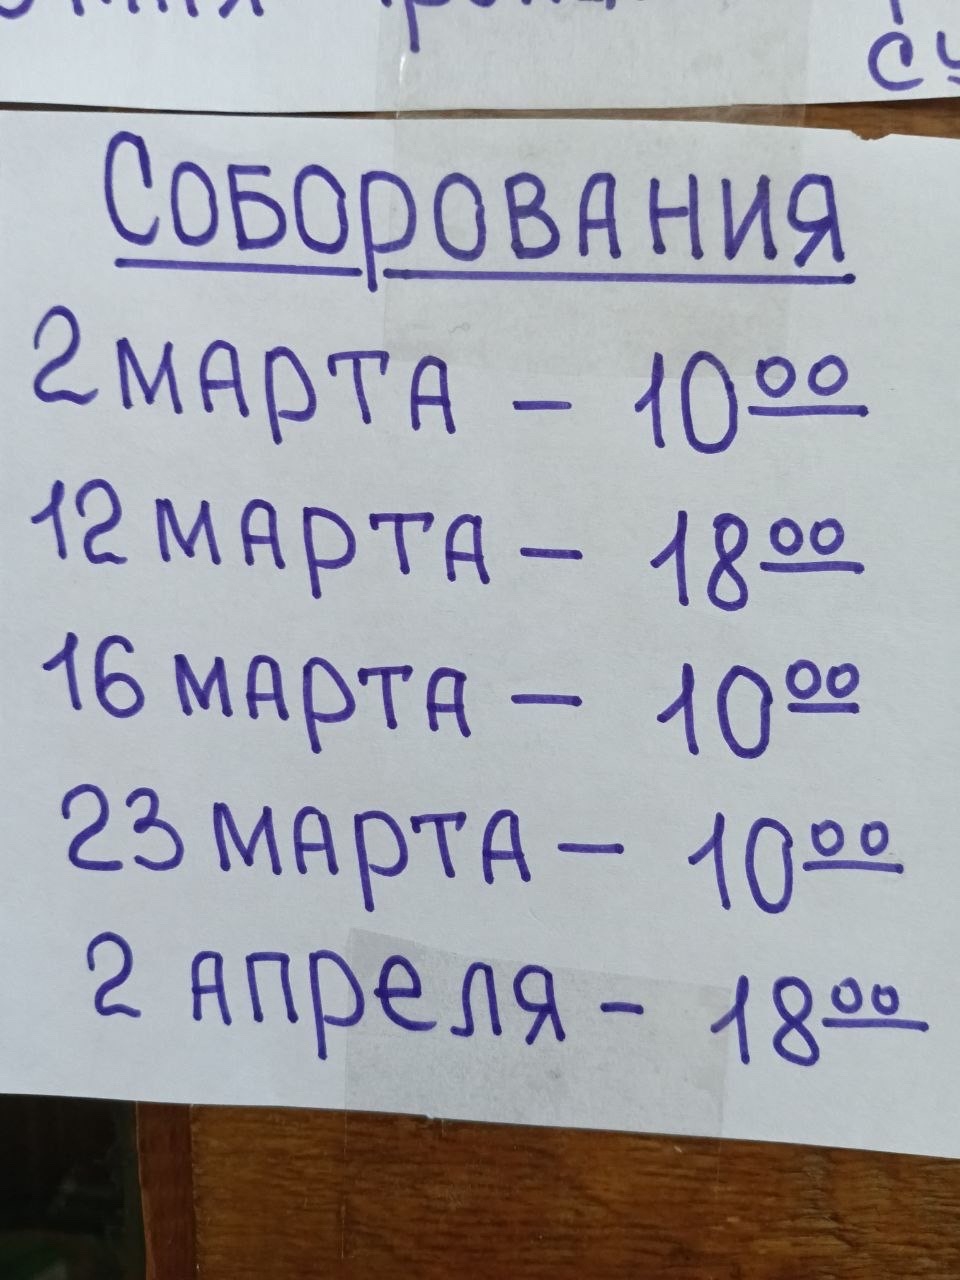 СОБОРОВАНИЯ
2 МАРТА – 10 00
12 МАРТА – 18 00
16 МАРТА – 10 00
23 МАРТА – 10 00
2 АПРЕЛЯ – 18 00